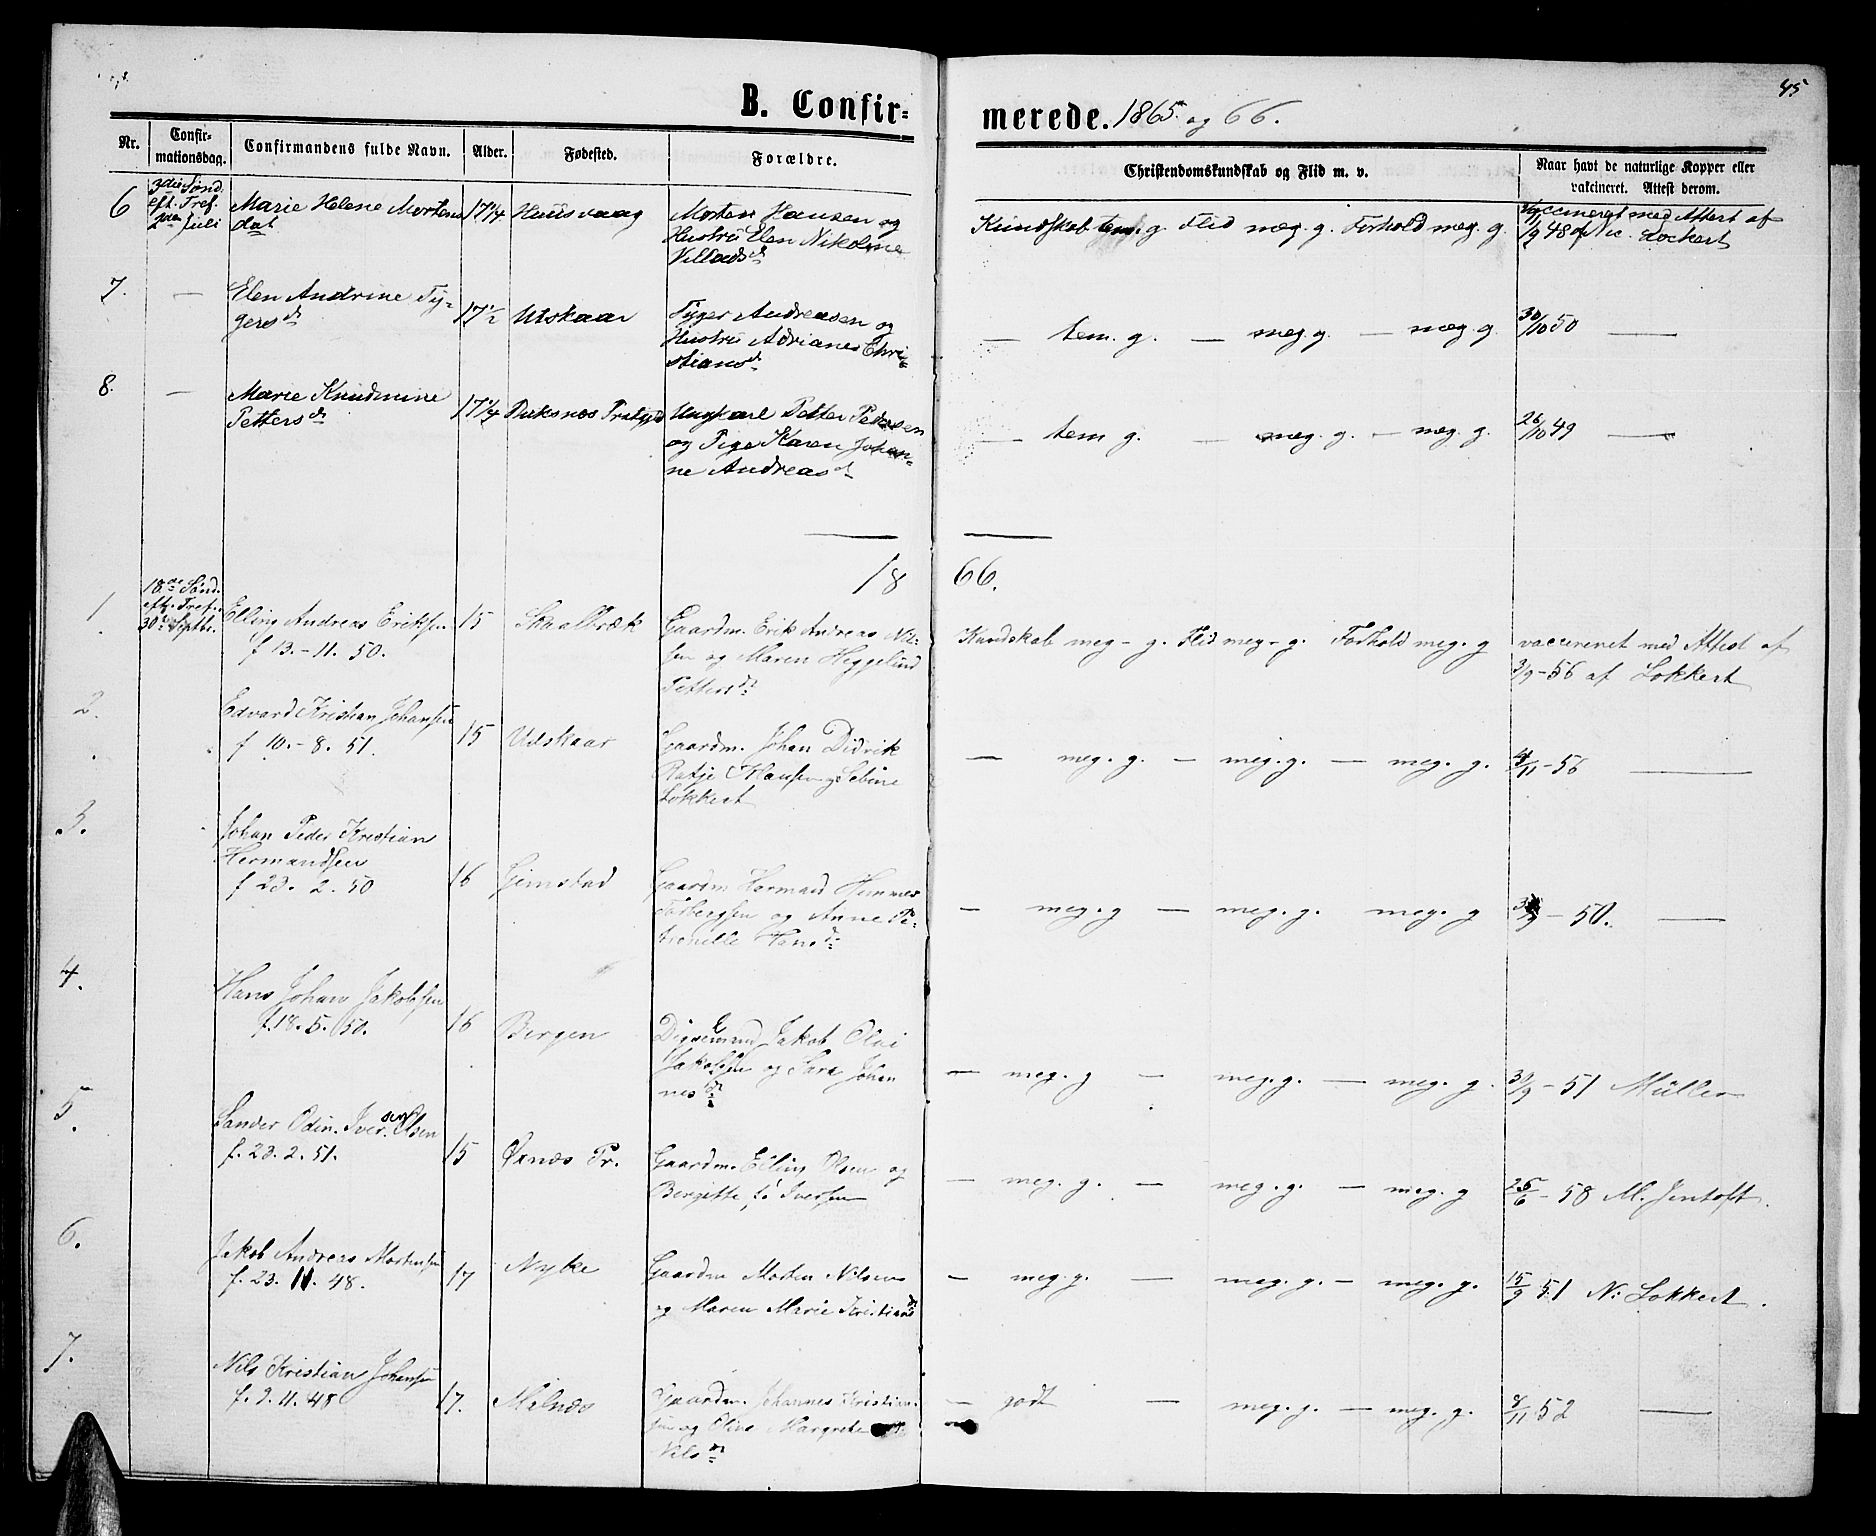 45
B. Confirmerede. 1865 og 66.
Nr.
Confirmationsdag.
Confirmandens fulde Navn.
Alder.
Fødested.
Forældre.
Christendomskundskab og Flid m. v.
Naar havt de naturlige Kopper eller
vakcineret. Attest derom.
6
3die Sønd.
eft. Tref.
2den Juli
Marie Helene Mortens
dat
17 1/4
Huusvaag
Morten Hansen og
Hustru Elen Nikoline
Villads d:
Kundskab tem. g. Flid meg. g. Forhold meg. g.
Vaccineret med Attest af
11/9 48 af Nic. Lockert
7.
—
Elen Andrine Ty-
gers d:
17 1/2
Utskaar
Tyger Andreasen og
Hustru Adriane Chri-
stians d:
— tem. g. — meg. g. — meg. g.
30/10 50 —
8.
—
Marie Knudmine
Petters d:
17 1/4
Diksnes Prstgjd
Ungkarl Petter Pedersen
og Pige Karen Johan-
ne Andreas d:
— tem g. — meg. g. — meg. g.
26/10 49 —
1866.
1.
18de Sønd.
eft. Tref.
30 Septbr.
Elling Andreas Eriksen
f 13.-11. 50.
15
Skaalbræk
Gaardm. Erik Andreas Nil-
sen og Maren Heggelund
Petters d:
Kundskab meg. g. Flid meg. g. Forhold meg. g
vaccineret med Attest af
3/9-56 af Lokkert
2.
Edvard Kristian Johansen
f 10.-8. 51.
15
Udskaar
Gaardm. Johan Didrik
Ratje Hansen og Sebine
Lokkert
— meg. g. — meg. g. — meg. g.
4/11-56 —
3.
Johan Peder Kristian
Hermandsen
f 23. 2. 50
16
Gimstad
Gaardm Hermand Hemmer
Torbergsen og Anne Pe-
tronelle Hans d:
— meg. g — meg. g. meg. g
- 50. —
4.
Hans Johan Jakobsen
f. 18. 5. 50.
16
Bergen
Jakob Olai
Jakobsen og Sara Johan
nes d:
— meg. g — meg. g. — meg. g.
30/9-51 Müller
5.
Sander Odin Iversen Olsen
f. 23. 2. 51.
15
Øxnes Pr.
Gaardm. Elling Olsen og
Bergitte f. Iversen
— meg. g. — meg. g. — meg. g
25/6-58 M. Jentoft.
6.
Jakob Andreas Mortensen
f. 23. 11. 48.
17
Nyke
Gaardm Morten Nilsen
og Maren Marie Kristians d:
— meg. g. — meg. g. — meg. g.
15/9 51 N: Lokkert.
7.
Nils Kristian Johansen
f. 9. 11. 48
17.
Melnes
Gaardm. Johannes Kristian-
sen og Oline Margrete
Nils d:
— godt — meg. g. — meg. g.
8/11 52 —